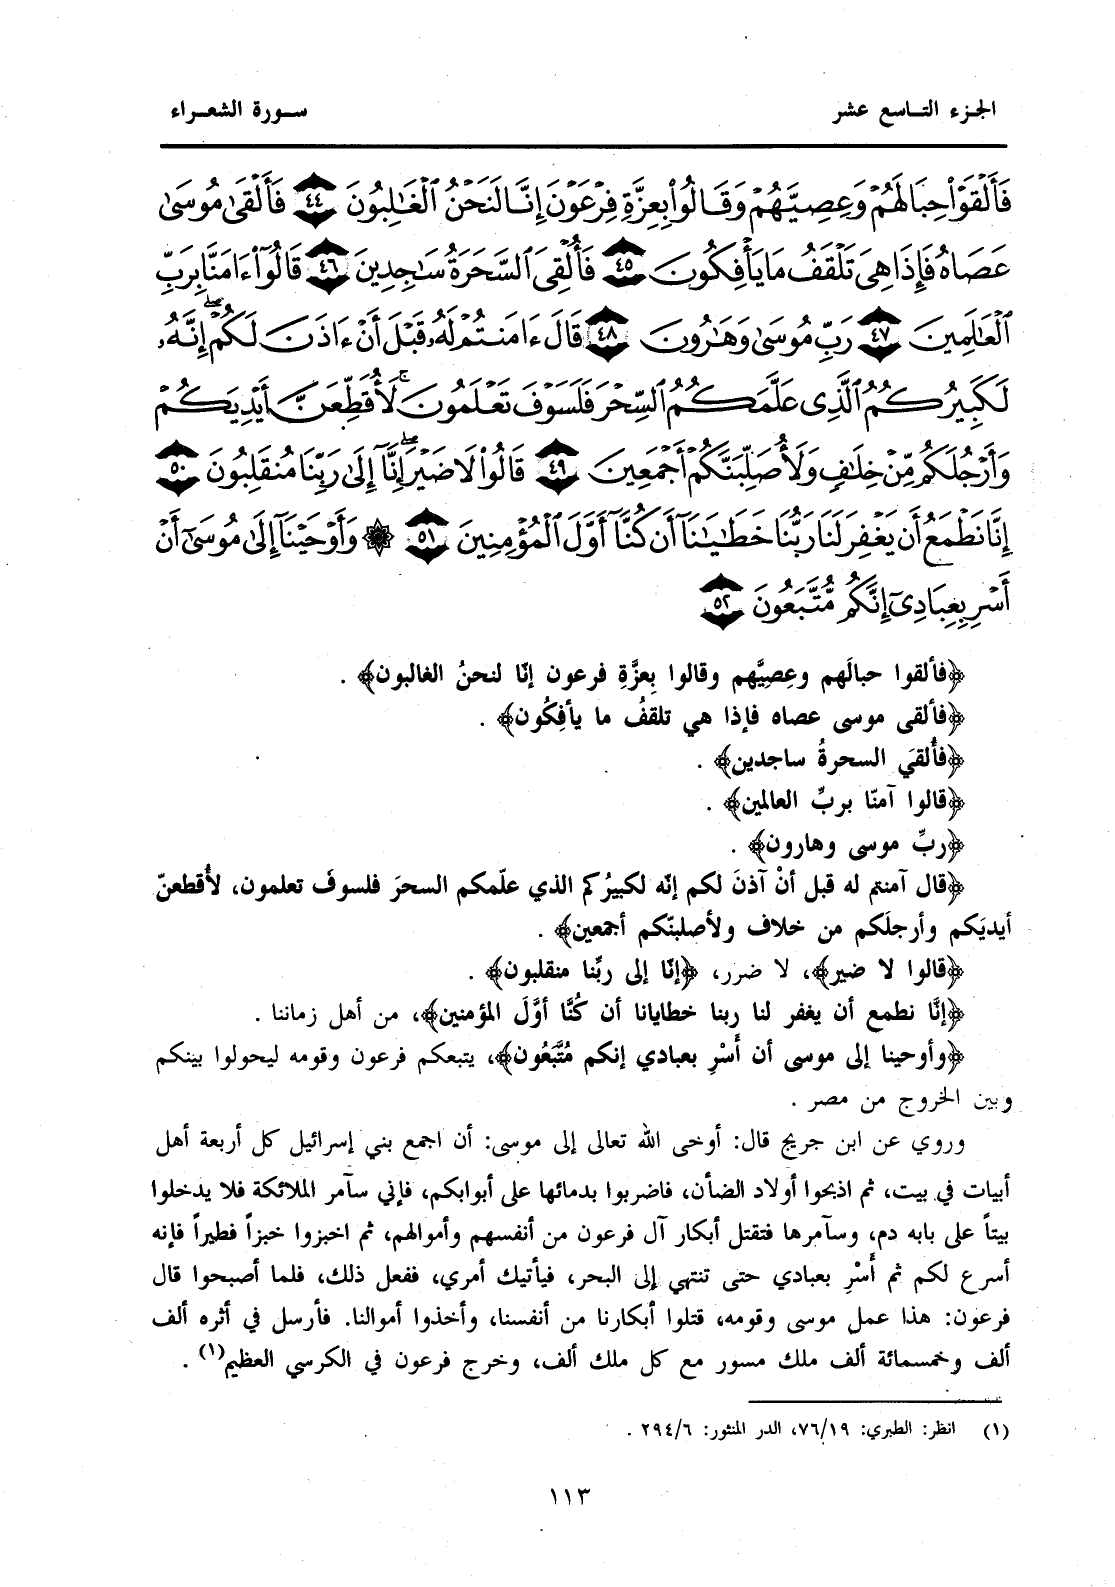 الجزء التاسع عشر
سورة الشعراء
فَأَلْقَوْا۟ حِبَالَهُمْ وَعِصِيَّهُمْ وَقَالُوا۟ بِعِزَّةِ فِرْعَوْنَ إِنَّا لَنَحْنُ ٱلْغَـٰلِبُونَ ٤٤ فَأَلْقَىٰ مُوسَىٰ
عَصَاهُ فَإِذَا هِىَ تَلْقَفُ مَا يَأْفِكُونَ ٤٥ فَأُلْقِىَ ٱلسَّحَرَةُ سَـٰجِدِينَ ٤٦ قَالُوٓا۟ ءَامَنَّا بِرَبِّ
ٱلْعَـٰلَمِينَ ٤٧ رَبِّ مُوسَىٰ وَهَـٰرُونَ ٤٨ قَالَ ءَامَنتُمْ لَهُۥ قَبْلَ أَنْ ءَاذَنَ لَكُمْ ۖ إِنَّهُۥ
لَكَبِيرُكُمُ ٱلَّذِى عَلَّمَكُمُ ٱلسِّحْرَ فَلَسَوْفَ تَعْلَمُونَ ۚ لَأُقَطِّعَنَّ أَيْدِيَكُمْ
وَأَرْجُلَكُم مِّنْ خِلَـٰفٍ وَلَأُصَلِّبَنَّكُمْ أَجْمَعِينَ ٤٩ قَالُوا۟ لَا ضَيْرَ ۖ إِنَّآ إِلَىٰ رَبِّنَا مُنقَلِبُونَ ٥٠
إِنَّا نَطْمَعُ أَن يَغْفِرَ لَنَا رَبُّنَا خَطَـٰيَـٰنَآ أَن كُنَّآ أَوَّلَ ٱلْمُؤْمِنِينَ ٥١ ۞ وَأَوْحَيْنَآ إِلَىٰ مُوسَىٰٓ أَنْ
أَسْرِ بِعِبَادِىٓ إِنَّكُم مُّتَّبَعُونَ ٥٢
﴿فألقوا حبالَهم وعِصِيَّهم وقالوا بِعزَّةِ فرعون إنّا لنحنُ الغالبون﴾ .
﴿فألقى موسى عصاه فإذا هي تلقفُ ما يأفِكُون﴾ .
﴿فأُلقيَ السحرةُ ساجدين﴾ .
﴿قالوا آمنّا بربِّ العالمين﴾ .
﴿ربِّ موسى وهارون﴾ .
﴿قال آمنتم له قبل أنْ آذنَ لكم إنّه لكبيرُكم الذي علّمكم السحرَ فلسوفَ تعلمون، لأُقطعنّ
أيديَكم وأرجلَكم من خلاف ولأصلبنّكم أجمعين﴾ .
﴿قالوا لا ضير﴾، لا ضرر، ﴿إنّا إلى ربِّنا منقلبون﴾ .
﴿إنَّا نطمع أن يغفر لنا ربنا خطايانا أن كُنَّا أوَّلَ المؤمنين﴾، من أهل زماننا .
﴿وأوحينا إلى موسى أن أَسْرِ بعبادي إنكم مُتَّبَعُون﴾، يتبعكم فرعون وقومه ليحولوا بينكم
وبين الخروج من مصر .
وروي عن ابن جريج قال: أوحى الله تعالى إلى موسى: أن اجمع بني إسرائيل كل أربعة أهل
أبيات في بيت، ثم اذبحوا أولاد الضأن، فاضربوا بدمائها على أبوابكم، فإني سآمر الملائكة فلا يدخلوا
بيتاً على بابه دم، وسآمرها فتقتل أبكار آل فرعون من أنفسهم وأموالهم، ثم اخبزوا خبزاً فطيراً فإنه
أسرع لكم ثم أَسْرِ بعبادي حتى تنتهي إلى البحر، فيأتيك أمري، ففعل ذلك، فلما أصبحوا قال
فرعون: هذا عمل موسى وقومه، قتلوا أبكارنا من أنفسنا، وأخذوا أموالنا. فأرسل في أثره ألف
ألف وخمسمائة ألف ملك مسور مع كل ملك ألف، وخرج فرعون في الكرسي العظيم(١) .
(١) انظر: الطبري: ٧٦/١٩، الدر المنثور: ٢٩٤/٦ .
١١٣